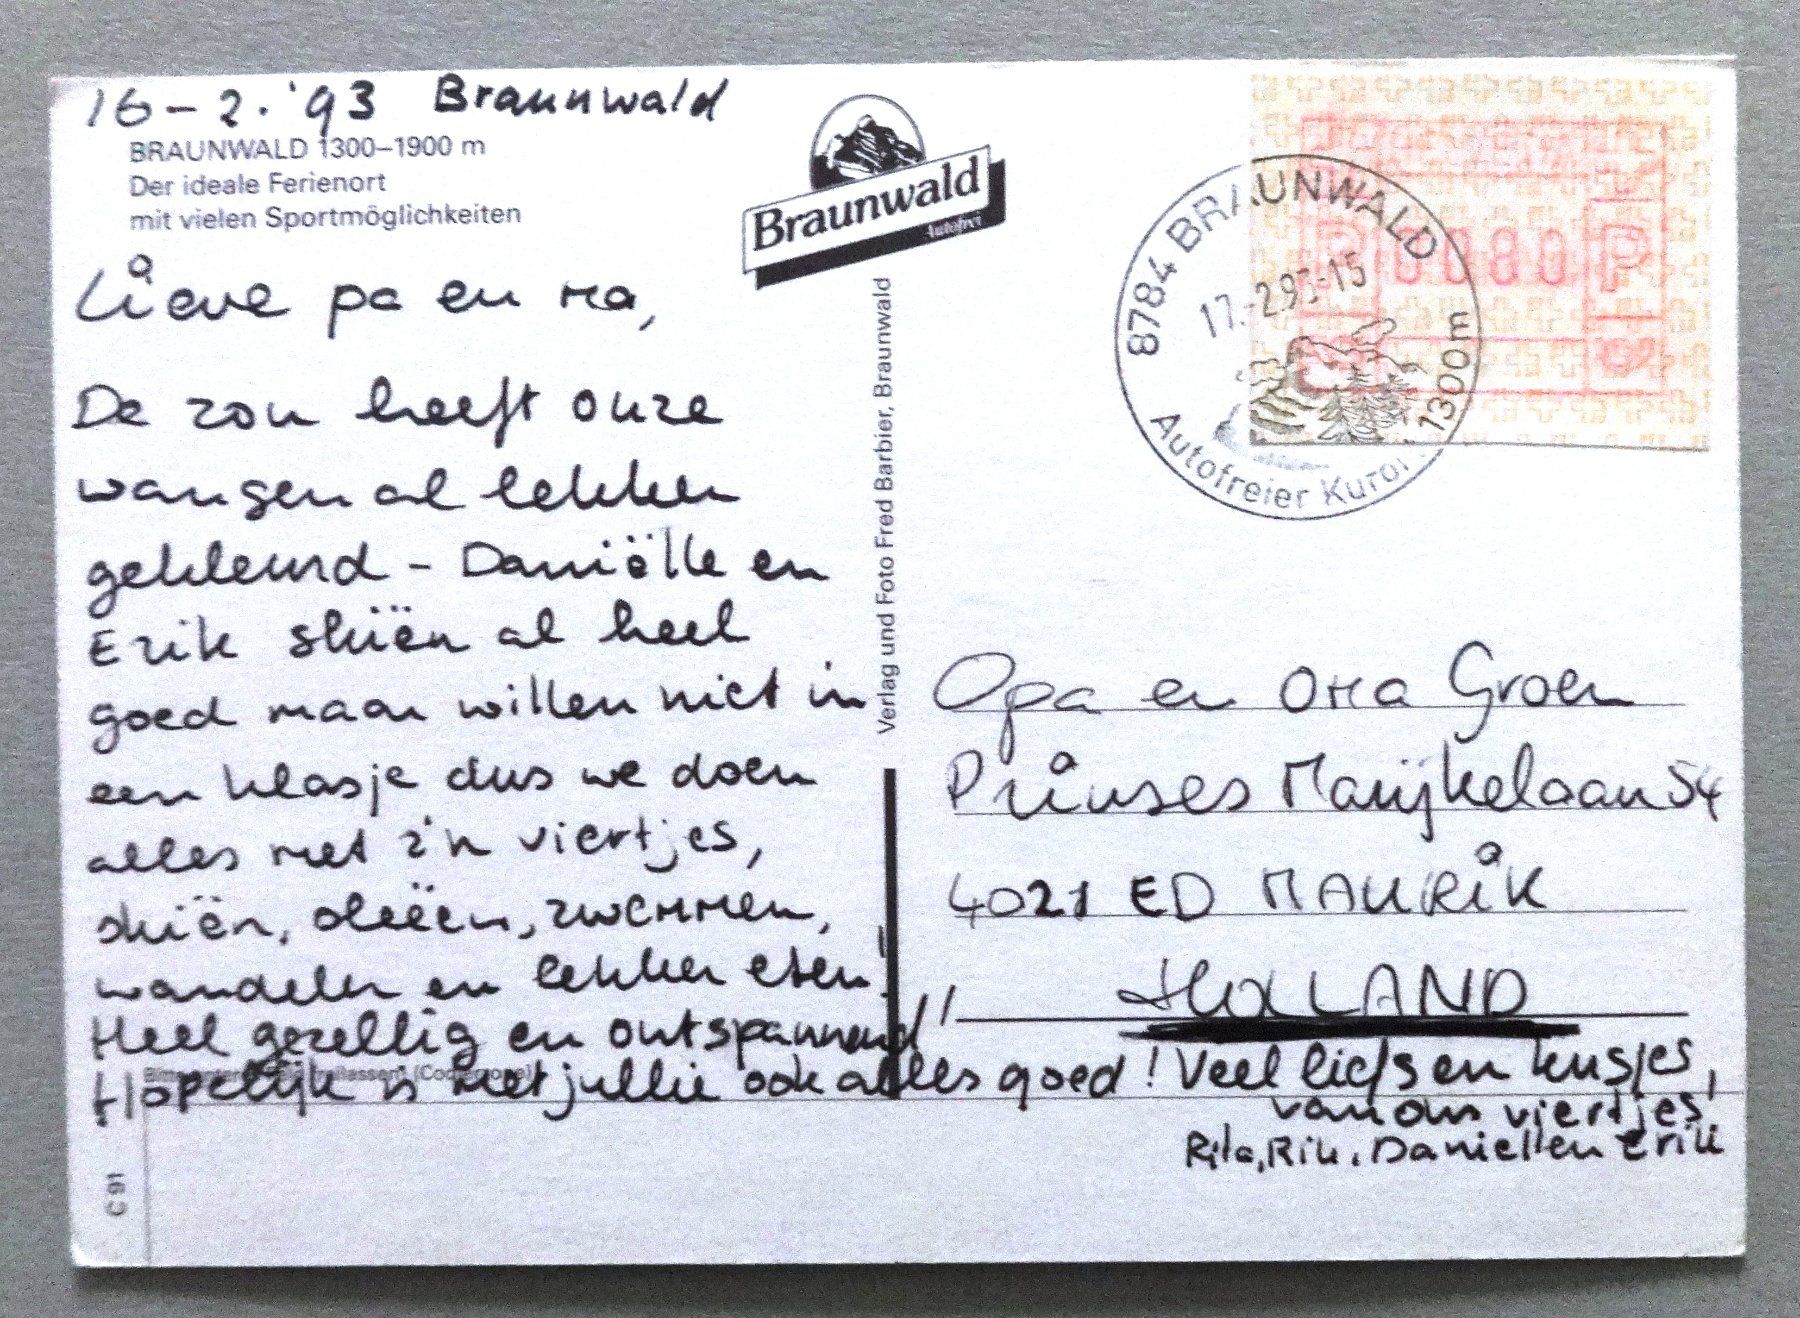 16-2.'93 Braunwald
BRAUNWALD 1300–1900 m
Der ideale Ferienort
mit vielen Sportmöglichkeiten
Braunwald
Autofrei
Lieve pa en ma,
De zon heeft onze
wangen al lekker
gekleurd - Daniëlle en
Erik skiën al heel
goed maar willen niet in
een klasje dus we doen
alles met z'n viertjes,
skiën, sleeën, zwemmen,
wandelen en lekker eten!
Heel gezellig en ontspannend!!
Hopelijk is met jullie ook alles goed! Veel liefs en kusjes,
van ons viertjes,
Rita, Rik, Daniell en Erik
Verlag und Foto Fred Barbier, Braunwald
8784 BRAUNWALD
17.-2.93-15
1300m
Autofreier Kurort
P 0080 P
Opa en oma Groen
Prinses Marijkelaan 54
4021 ED MAURIK
HOLLAND
C 91